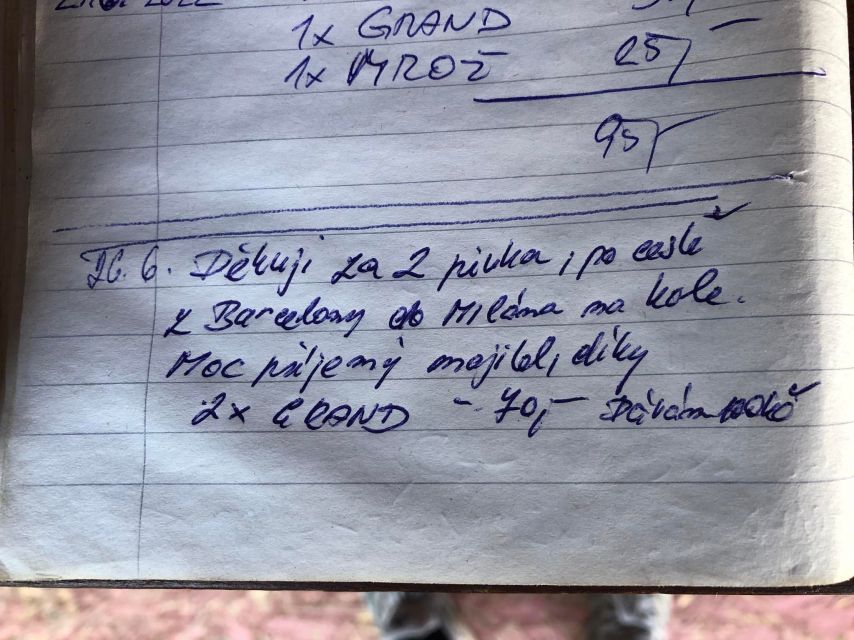 1x GRAND
1x MROŽ 25,-
95,-
26. 6. Děkuji za 2 pivka, po cestě
z Barcelony do Milána na kole.
Moc příjemný majitel, díky
2x GRAND - 70,- Dávám 100kč